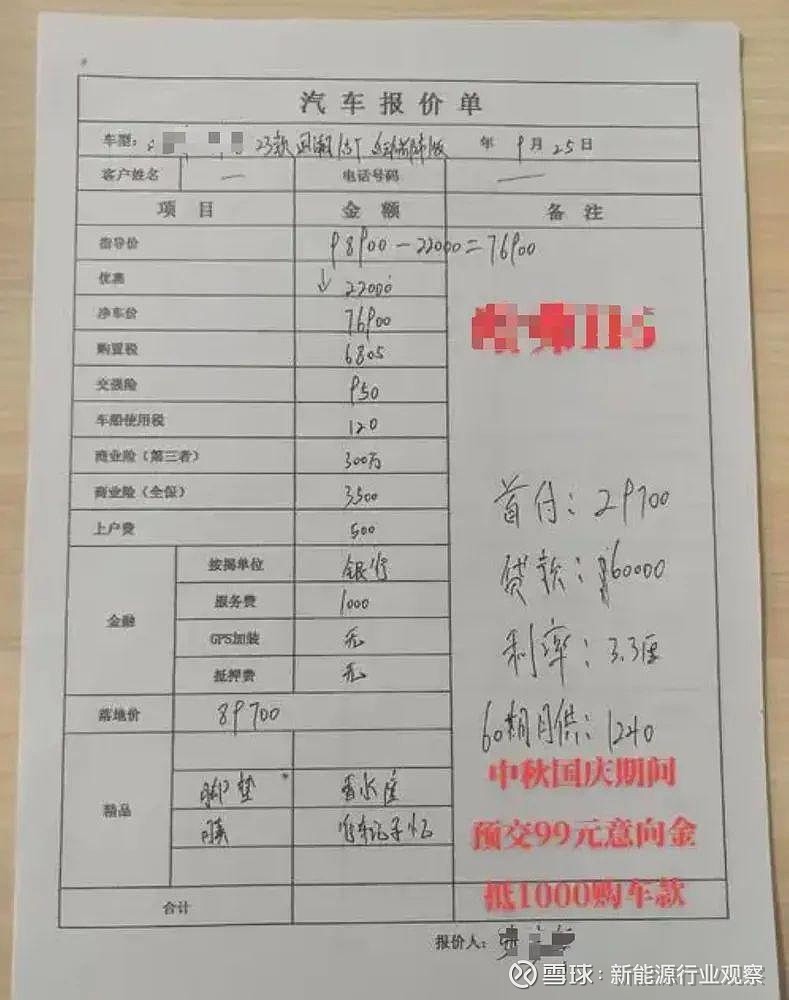 汽车报价单
车型： 23款 国潮版 1.5T 年 9月25日
客户姓名 — 电话号码 —
项目 金额 备注
指导价 98900-22000=76900
优惠 ↓22000
净车价 76900
购置税 6805
交强险 950
车船使用税 120
商业险（第三者） 300万
商业险（全保） 3500
上户费 500
首付：29700
金融
按揭单位 银行
贷款：60000
服务费 1000
GPS加装 无
利率：3.3厘
抵押费 无
落地价 89700
60期月供：1240
精品
脚垫 香水座
膜
中秋国庆期间
预交99元意向金
抵1000购车款
合计
报价人：
雪球：新能源行业观察